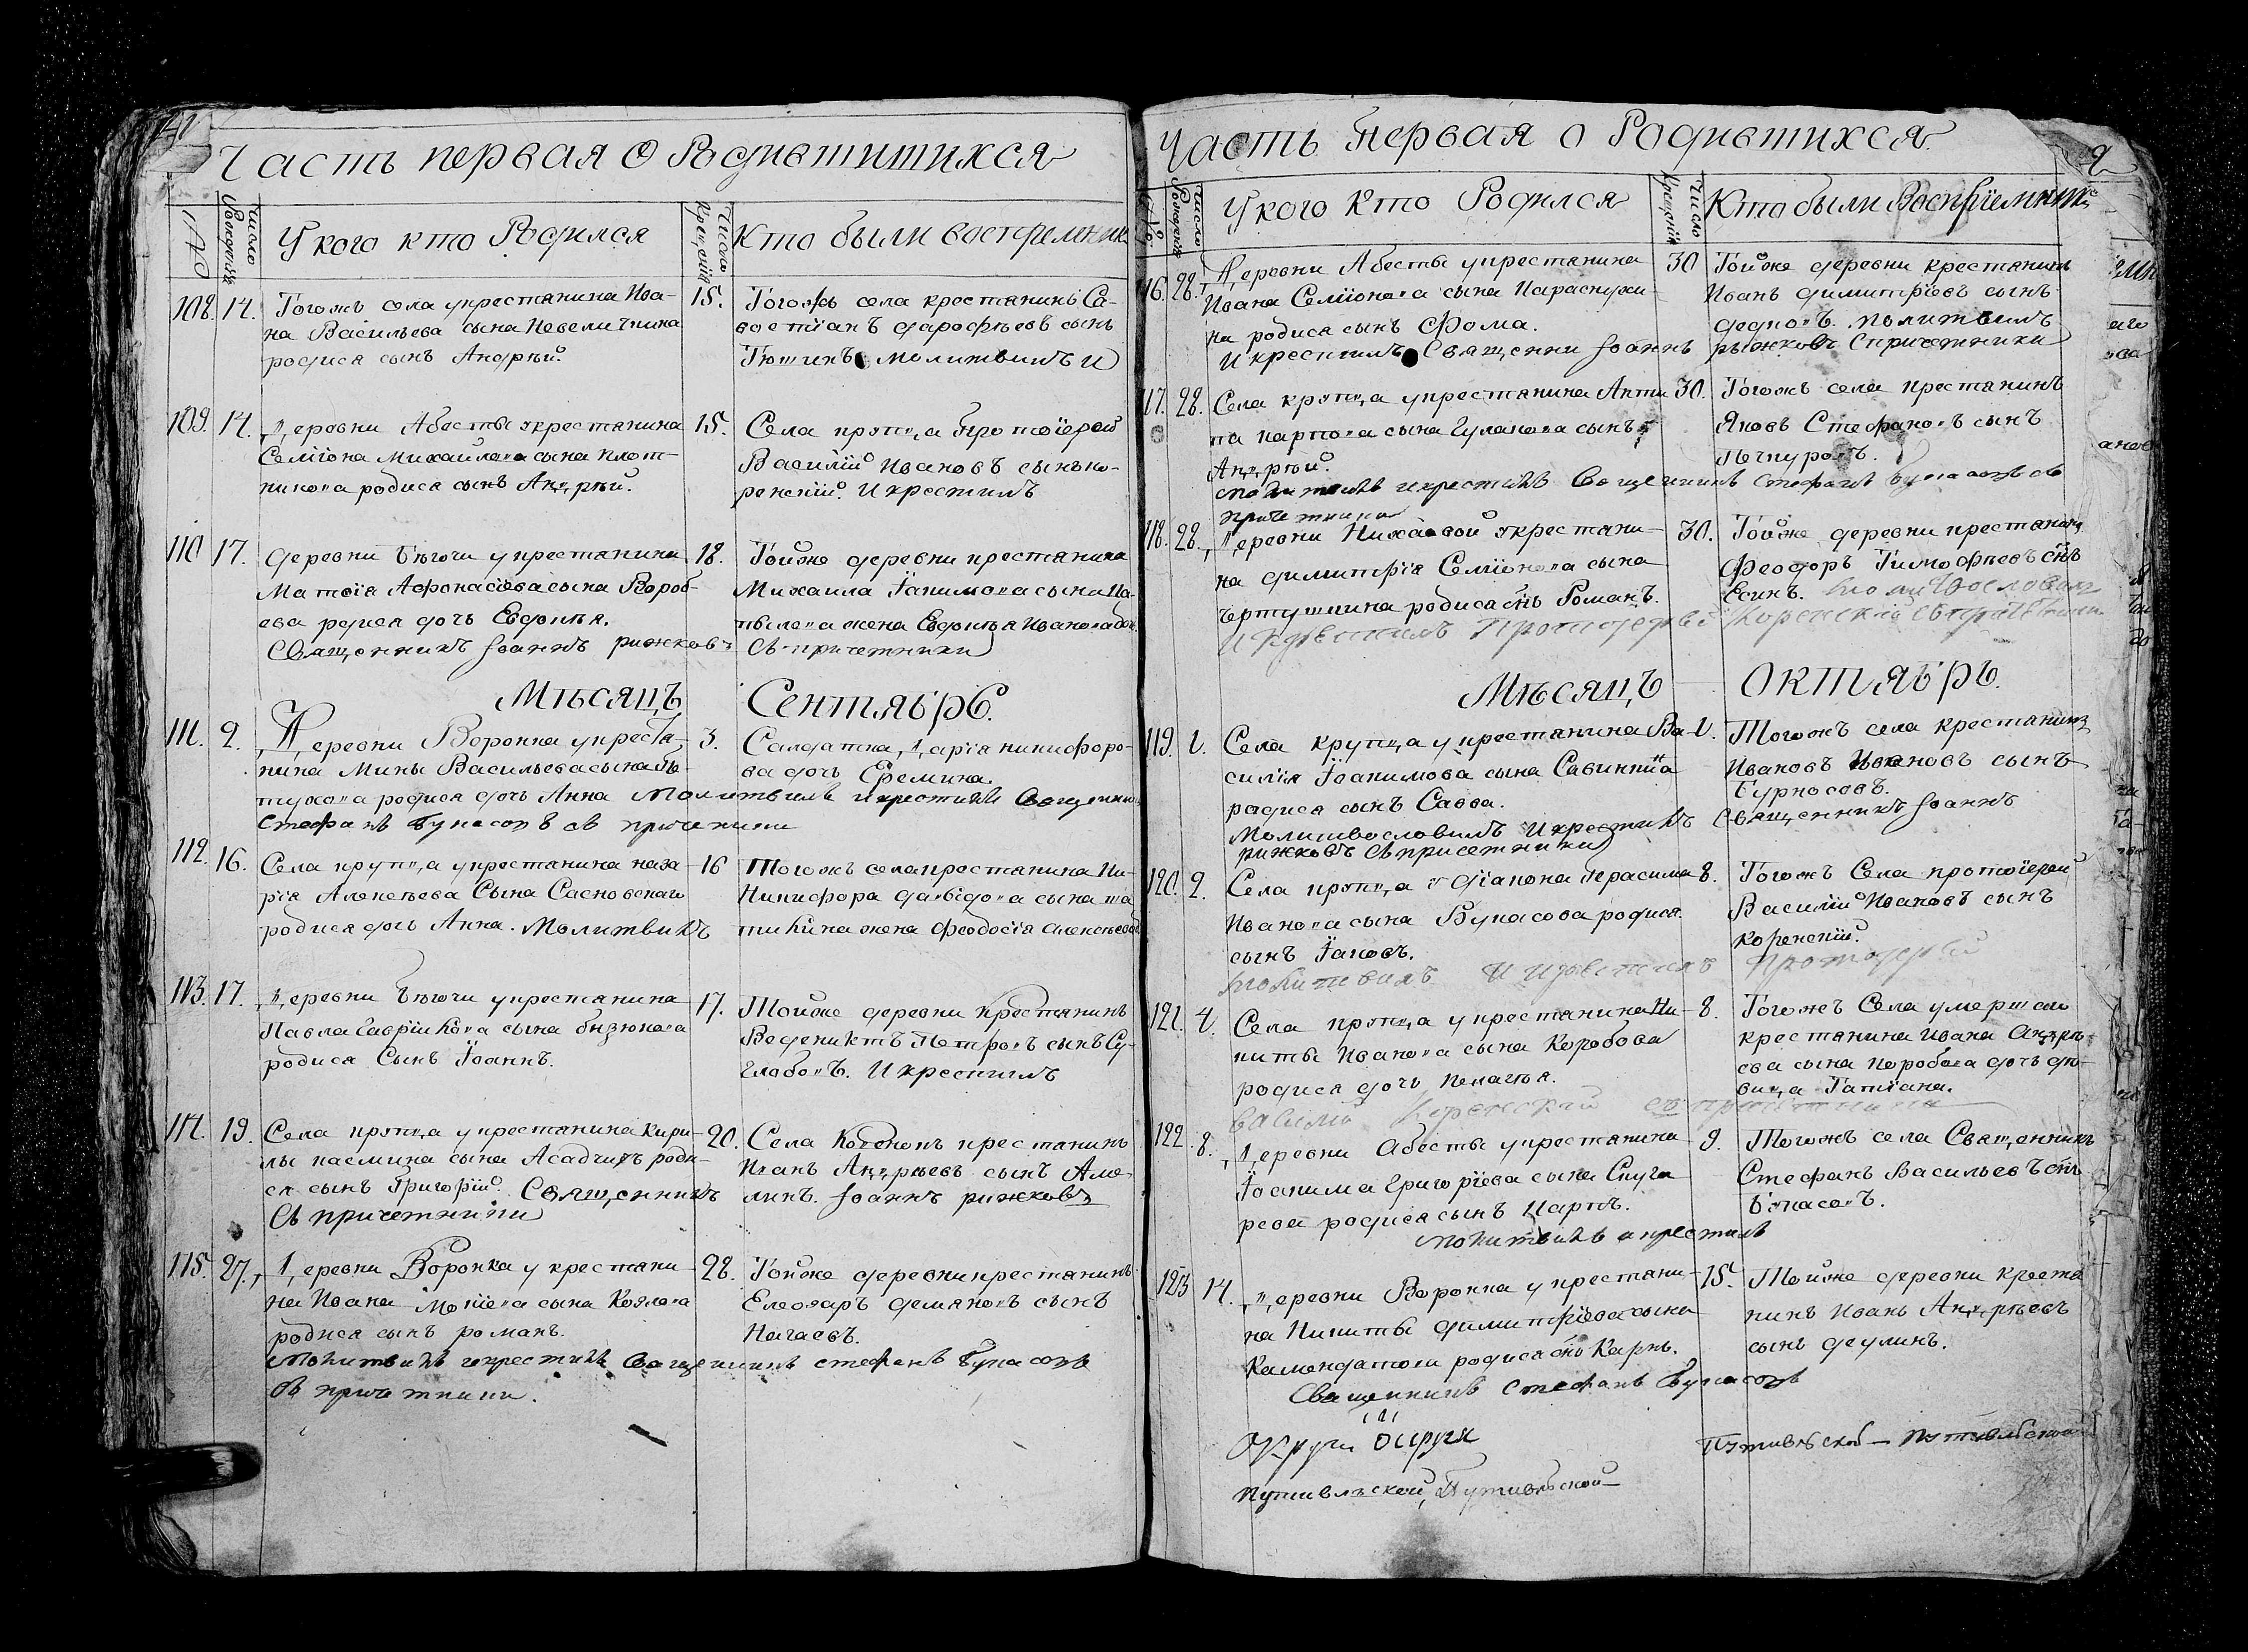 Часть первая О Родившишихся
№
число Рождения
У кого кто Родился
Число Крещения
Кто были восприемник
108. 14. Тогожъ села у крестанина Ива-
на Васильева сына Невеличкина
родися сынъ Андрѣй.
15. Тогожъ села крестанинъ Са-
востіанъ дарофѣевъ сынъ
Тюшинъ молитвилъ и
109. 14. Деревни Абесты у крестанина
Семіона Михаилова сына плот-
никова родися сынъ Андрѣй.
15. Села крупца протоіерей
Василій Ивановъ сынъ ко-
ренскій. И крестилъ
110 17. деревни Бѣгочи у крестанина
Матвія Афонасіева сына Вороб-
ева рдися дочь Евдокѣя.
Священникъ Іоаннъ рижковъ
18. Тойже деревни крестанина
Михаила Іакимова сына
жена Евдокѣя Иванова доч
Съ причетники
Мѣсяцъ Сентябрь.
111. 2. Деревни Воронка у креста-
нина Мины Васильева сына
родися дочь Анна Молитвилъ и крестилъ Священни
Стефанъ Букасовъ съ причетники
3. Салдатка Дарія никифоро-
ва дочь Еремина.
112. 16. Села крупца у крестанина наза-
рія Алексѣева Сына Сасновскаго
родися дочь Анна. Молитвилъ
16 Тогожъ села крестанина Ни-
Никифора давідова сына
жена Феодосія алексѣева
113. 17. Деревни Бѣгочи у крестанина
Павла Гавріилова сына бизюкова
родися Сынъ Іоаннъ.
17. Тойже деревни крестанинъ
Ведениктъ Петровъ сынъ Су-
глабовъ. И крестилъ
114. 19. Села крупца у крестанина кири-
лы касмина сына Асадчихъ роди-
ся сынъ Григорій. Священникъ
Съ причетники
20. Села крестанинъ
Иванъ Андрѣевъ сынъ Але-
линъ. Іоаннъ рижковъ
115. 27. Деревни Воронка у крестани-
на Ивана сына Козлова
родися сынъ романъ.
Молитвилъ и крестилъ Священникъ стефанъ Букасовъ
съ причетники.
28. Тойже деревни крестанинъ
Елеозаръ демяновъ сынъ
Нагаевъ.
Часть Первая о Родившихся
число Рожденія
У кого Кто Родился
Число Крещенія
Кто были Воспріемник
116. 28. Деревни Абесты у крестанина
Ивана Семіонова сына
на родися сынъ Фома.
И крестилъ Священни Іоаннъ рыжковъ Спричетники
30 Тойже деревни крестанинъ
Иванъ димитріевъ сынъ
дедковъ. молитвилъ
117. 28. Села крупца у крестанина Анти
па карпова сына Гулакова сынъ
Андрѣй.
молитвилъ и крестилъ Священникъ Стефанъ Букасовъ съ
причетники
30. Тогожъ села крестанинъ
Яковъ Стефановъ сынъ
118. 28. Деревни Нихаевой у крестани-
на димитрія Семіонова сына
родися снъ Романъ.
И крестилъ Протоіерей Коренскій съ причетники
30. Тойже деревни крестанинъ
Феодоръ Тимофѣевъ снъ
Есинъ. молитвословилъ
Мѣсяцъ Октябрь.
119. 1. Села крупца у крестанина Ва-
силія Іоакимова сына Савинкина
родися сынъ Савва.
Молитвословилъ И крестилъ Священникъ Іоаннъ
рижковъ Съ присетники
1. Тогожъ села крестанинъ
Ивановъ Ивановъ сынъ
Бурносовъ.
120. 2. Села крупца у діакона Герасима
Иванова сына Букасова родися
сынъ Іаковъ.
Молитвилъ И крестилъ протоіерей
8. Тогожъ Села протоіерей
Василій Ивановъ сынъ
коренскій.
121. 4. Села крупца у крестанина Ни-
киты Иванова сына Коробова
родися дочь пелагѣя.
василій Коренскій съ причетники
8. Тогожъ Села умершаго
крестанина Ивана Андрѣ-
ева сына коробова дочь дѣ-
вица Татіана.
122. 8. Деревни Абесты у крестанина
Іоакима григоріева сына Снуга
рева родися сынъ Карпъ.
молитвилъ и крестилъ
9. Тогожъ села Священникъ
Стефанъ Васильевъ снъ
Букасовъ.
123 14. Деревни Воронка у крестани-
на Никиты димитріева сына
родися снъ Карпъ.
Священникъ Стефанъ Букасовъ
15. Тойже деревни креста
нинъ Иванъ Андрѣевъ
сынъ деулинъ.
Округи Округи
Путивльской, Путивльской
Путивльской Путивльской